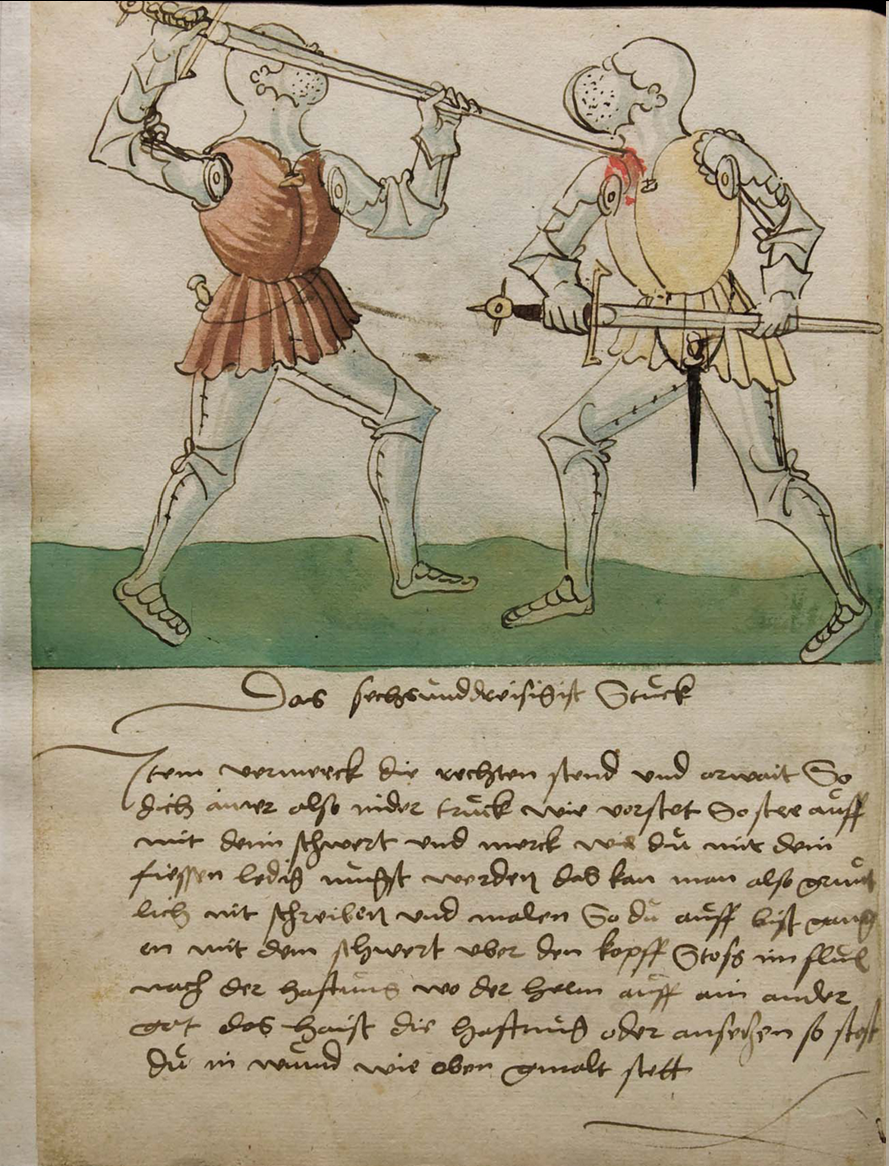 Das sechsunddreisigist Stuck
Item vermerck die rechten stend und arwait So
dich ainer also nider truck wie vorstet So stee auff
mit deim schwert und merck wie du mit dein
fiessen ledig mugst werden das kan man also grunt
lich nit schreiben und malen So du auff bist gang
en mit dem schwert uber den kopff Stoss im flux
nach der hafftung wo der helm auff ain ander
get das haist die hafftung oder ansetzen so stost
du in wund wie oben gmalt stett